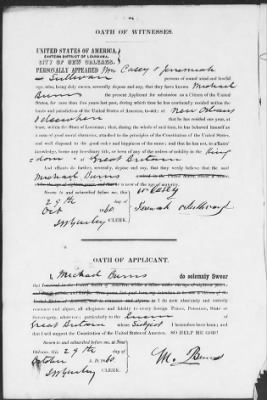 OATH OF WITNESSES.
UNITED STATES OF AMERICA,
EASTERN DISTRICT OF LOUISIANA,
CITY OF NEW ORLEANS.
PERSONALLY APPEARED Wm Casey & Jeremiah
O Sullivan persons of sound mind and lawful
age, who, being duly sworn, severally depose and say, that they have known Michael
Burns the present Applicant for admission as a Citizen of the United
States, for more than five years last past, during which time he has continually resided within the
limits and jurisdiction of the United States of America, to-wit: at New Orleans
& elsewhere that he has resided one year, at
least, within the State of Louisiana; that, during the whole of said time, he has behaved himself as
a man of good moral character, attached to the principles of the Constitution of the United States,
and well disposed to the good order and happiness of the same; and that he has not, to affiants'
knowledge, borne any hereditary title, or been of any of the orders of nobility in the King
dom of Great Britain
And affiants do further, severally, depose and say, that they verily believe that the said
Michael Burns
Sworn to and subscribed before me, this
29th day of
Oct 1860
CLERK.
Wm Casey
Jeremiah O Sullivan
OATH OF APPLICANT.
I, Michael Burns do solemnly Swear
that I do now absolutely and entirely
renounce and abjure, all allegiance and fidelity to every Foreign Prince, Potentate, State or
Sovereignty, whatever, particularly to the Queen of
Great Britain whose Subject I heretofore have been; and
that I will support the Constitution of the United States of America. SO HELP ME GOD!
Sworn to and subscribed before me, at New
Orleans, this 29th day of
October A. D. 1860
CLERK.
M. Burns